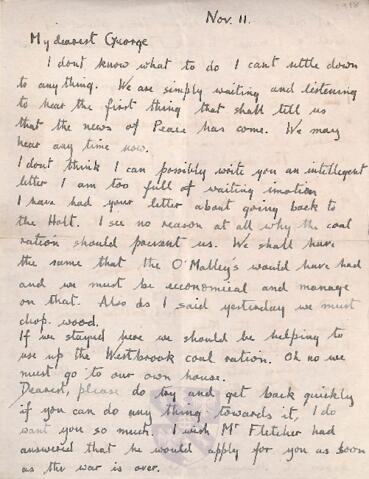 1918
Nov. 11.
My dearest George
I dont know what to do I cant settle down
to any thing. We are simply waiting and listening
to hear the first thing that shall tell us
that the news of Peace has come. We may
hear any time now.
I dont think I can possibly write you an intellegent
letter I am too full of waiting imotion
I have had your letter about going back to
the Holt. I see no reason at all why the coal
ration should prevent us. We shall have
the same that the O'Malley's would have had
and we must be economical and manage
on that. Also as I said yesterday we must
chop wood.
If we stayed here we should be helping to
use up the Westbrook coal ration. Oh no we
must go to our own house.
Dearest, please do try and get back quickly
if you can do any thing towards it, I do
want you so much. I wish Mr Fletcher had
answered that he would apply for you as soon
as the war is over.